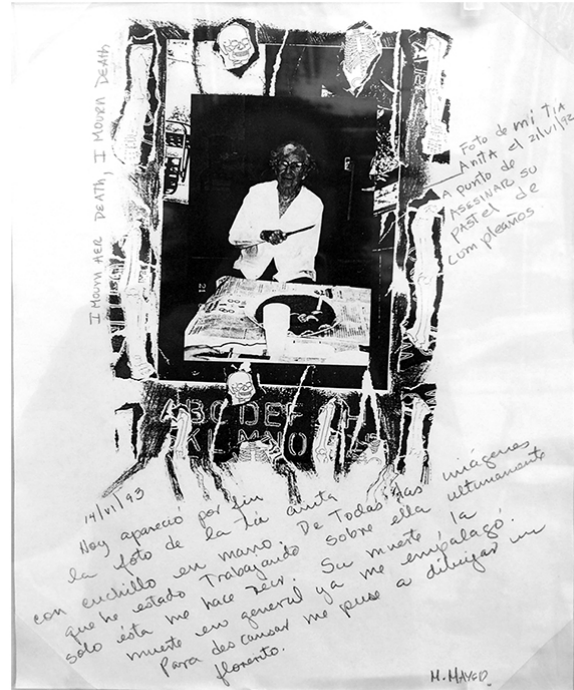 I MOURN HER DEATH, I MOURN DEATH
Foto de mi TIA
ANITA el 21/VI/92
A punto de
ASESINAR su
pastel de
cumpleaños
21
ABCDEF H
KLMNO
14/VI/93
Hoy apareció por fin
la foto de la tía anita
con cuchillo en mano. De Todas las imágenes
que he estado Trabajando sobre ella ultimamente
solo esta me hace reir. Su muerte, la
muerte en general ya me empalagó.
Para descansar me puse a dibujar un
florero.
M. MAYER.